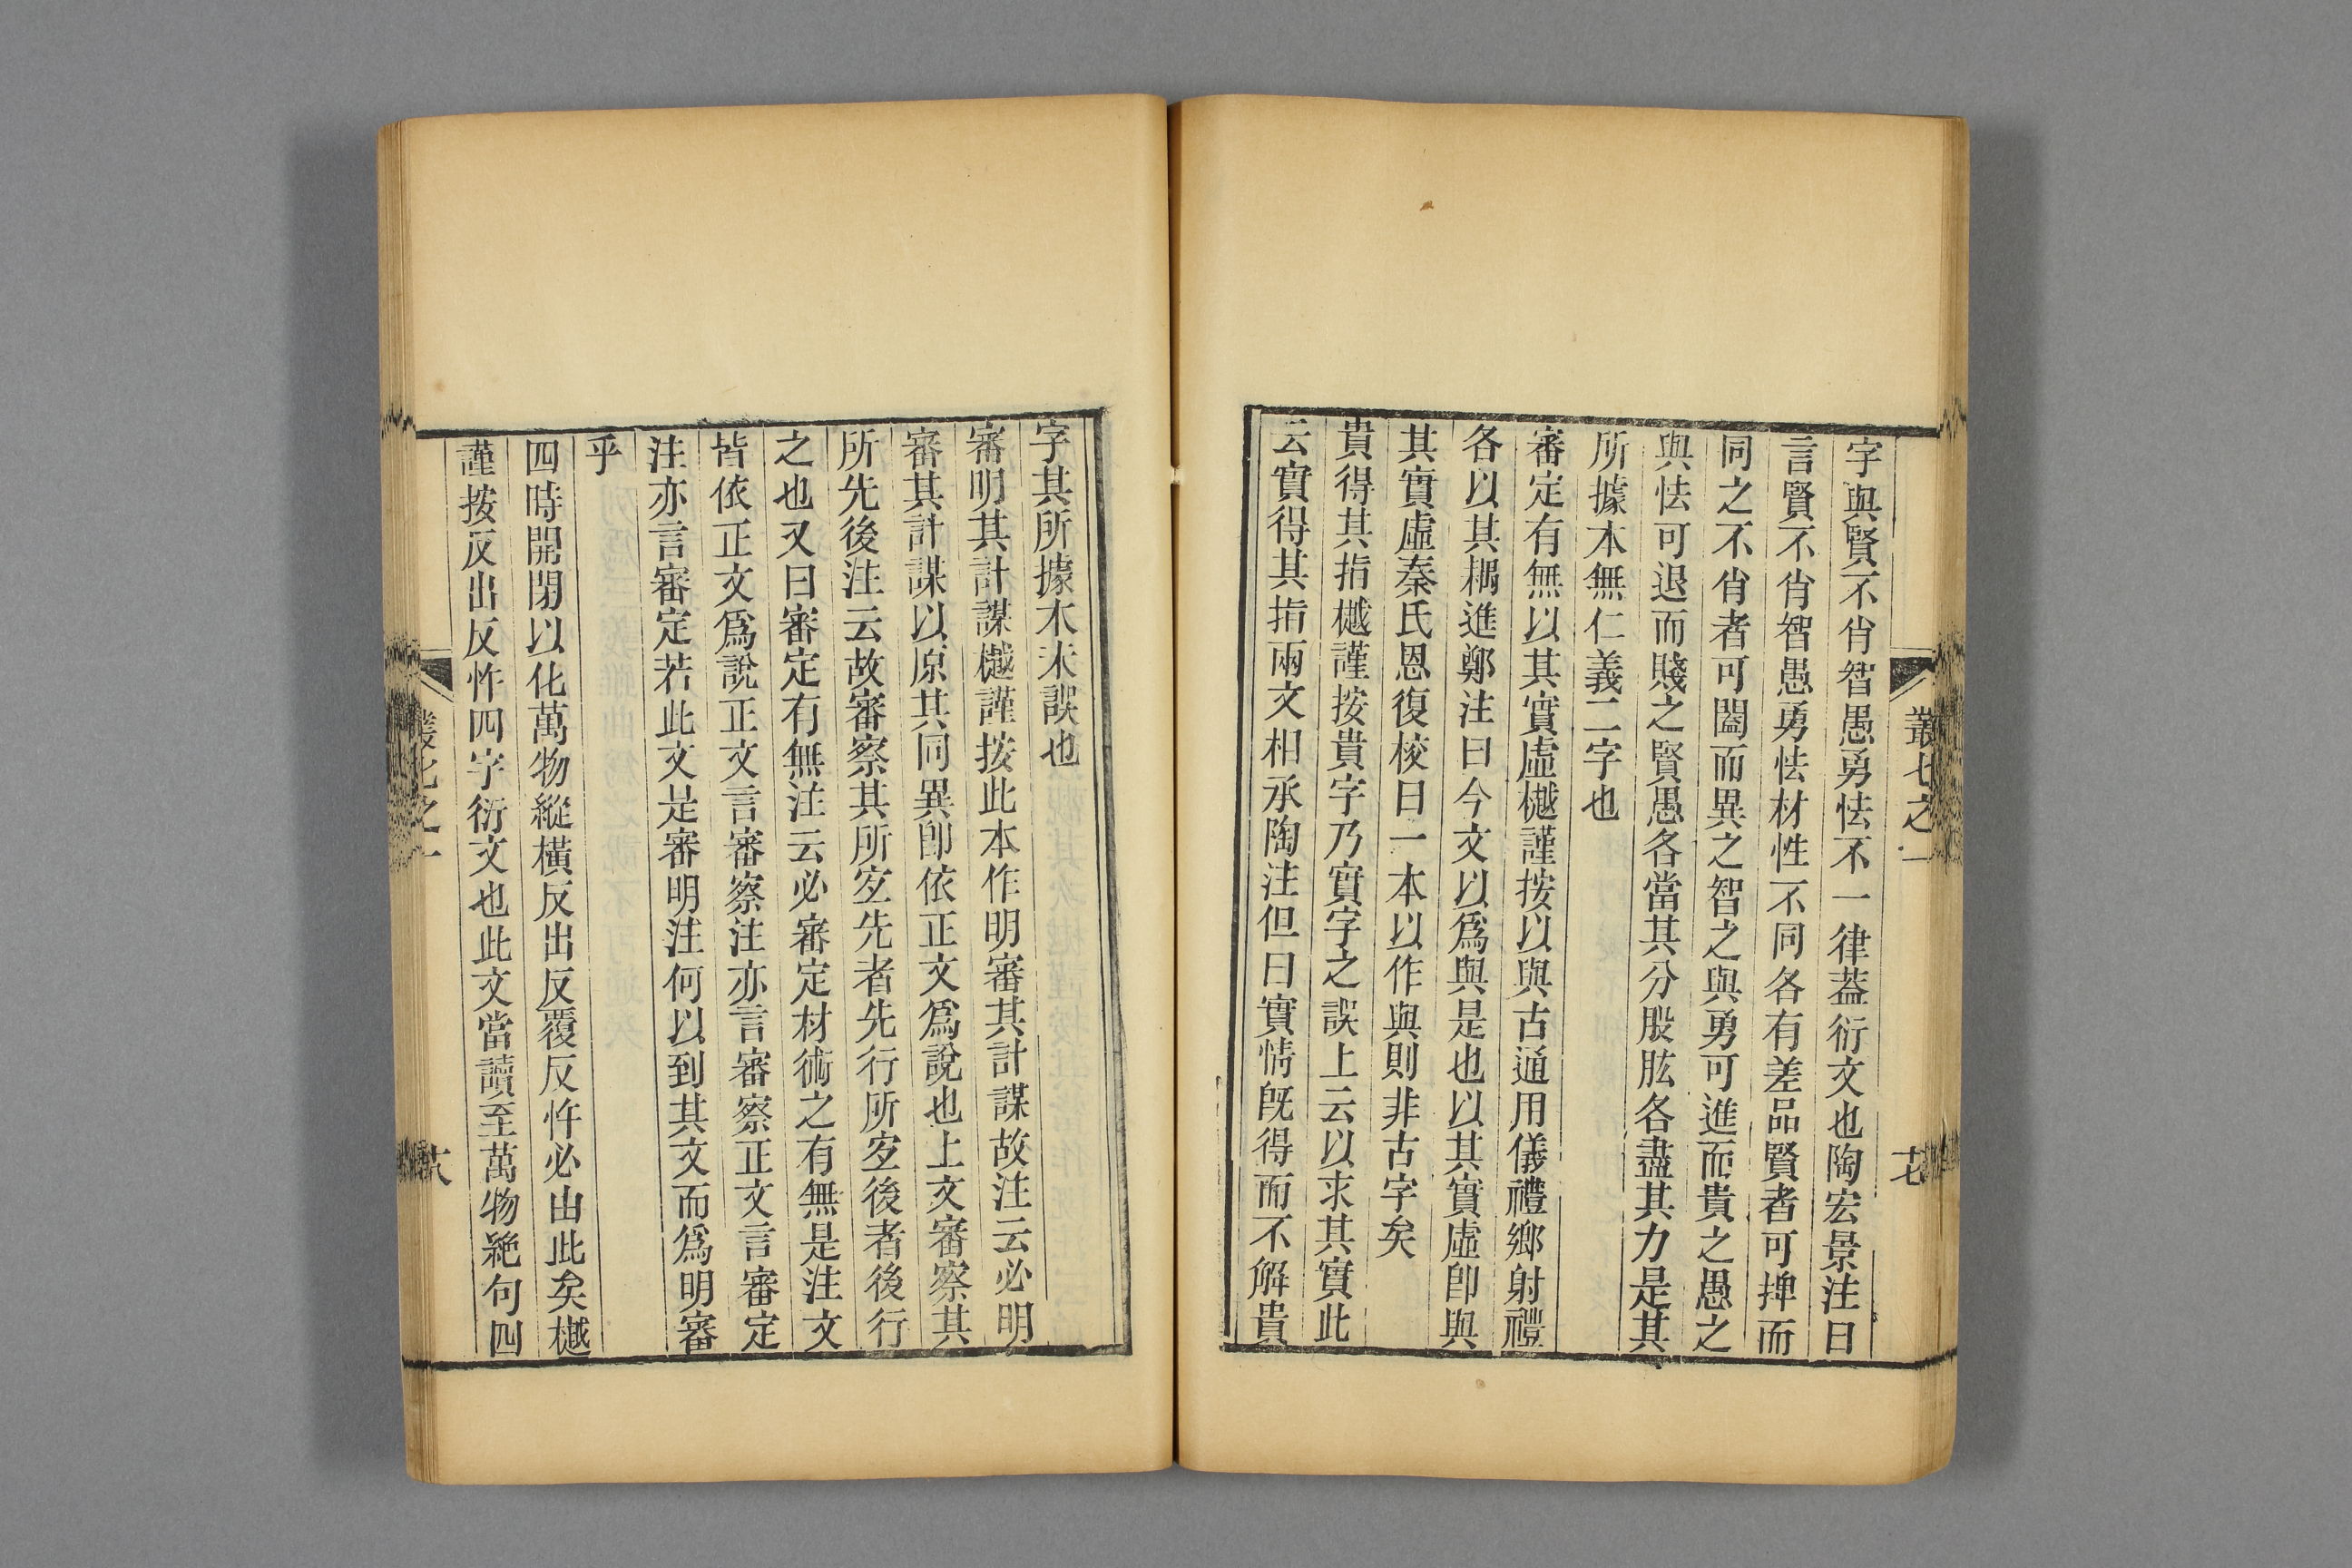 叢七之一
字與賢不肖智愚勇怯不一律葢衍文也陶宏景注曰
言賢不肖智愚勇怯材性不同各有差品賢者可捭而
同之不肖者可闔而異之智之與勇可進而貴之愚之
與怯可退而賤之賢愚各當其分股肱各盡其力是其
所據本無仁義二字也
審定有無以其實虛樾謹按以與古通用儀禮鄉射禮
各以其耦進鄭注曰今文以爲與是也以其實虛卽與
其實虛秦氏恩復校曰一本以作與則非古字矣
貴得其指樾謹按貴字乃實字之誤上云以求其實此
云實得其指兩文相承陶注但曰實情旣得而不解貴
字其所據本未誤也
審明其計謀樾謹按此本作明審其計謀故注云必明
審其計謀以原其同異卽依正文爲說也上文審察其
所先後注云故審察其所宜先者先行所宜後者後行
之也又曰審定有無注云必審定材術之有無是注文
皆依正文爲說正文言審察注亦言審察正文言審定
注亦言審定若此文是審明注何以到其文而爲明審
乎
四時開閉以化萬物縱橫反出反覆反忤必由此矣樾
謹按反出反忤四字衍文也此文當讀至萬物絕句四
叢七之一